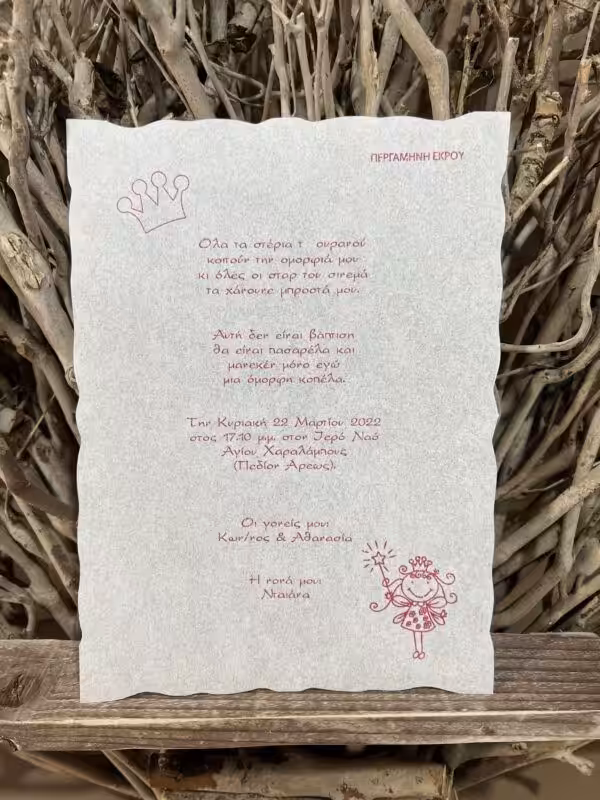 ΠΕΡΓΑΜΗΝΗ ΕΚΡΟΥ
Όλα τα στέρια τ ουρανού
κοιτούν την ομορφιά μου
κι όλες οι σταρ του σινεμά
τα χάνουνε μπροστά μου.
Αυτή δεν είναι βάπτιση
θα είναι πασαρέλα και
μανεκέν μόνο εγώ
μια όμορφη κοπέλα.
Την Κυριακή 22 Μαρτίου 2022
στος 17:10 μ.μ. στον Ιερό Ναό
Αγίου Χαραλάμπους
(Πεδίον Άρεως).
Οι γονείς μου:
Κων/νος & Αθανασία
Η νονά μου:
Νταϊάνα